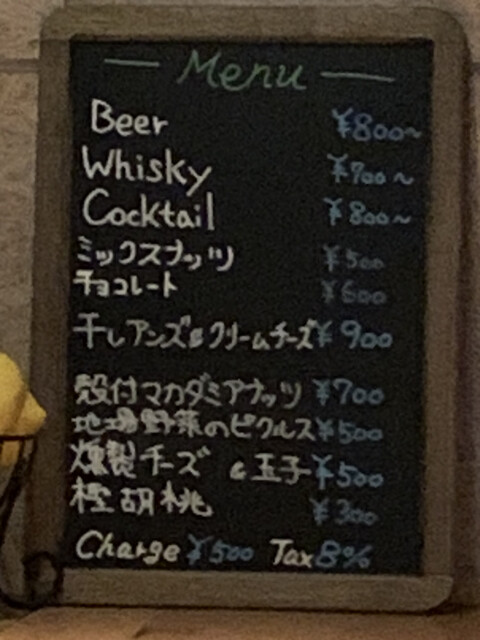 Menu
Beer ¥800~
Whisky ¥700~
Cocktail ¥800~
ミックスナッツ ¥500
チョコレート ¥600
干しアンズ&クリームチーズ ¥900
殻付マカダミアナッツ ¥700
地場野菜のピクルス ¥500
燻製チーズ &玉子 ¥500
樫胡桃 ¥300
Charge ¥500 Tax 8%